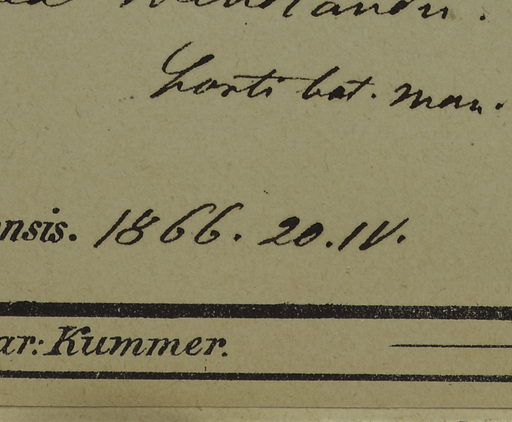 Horti bot. mon.
nsis. 1866. 20. IV.
ar: Kummer.